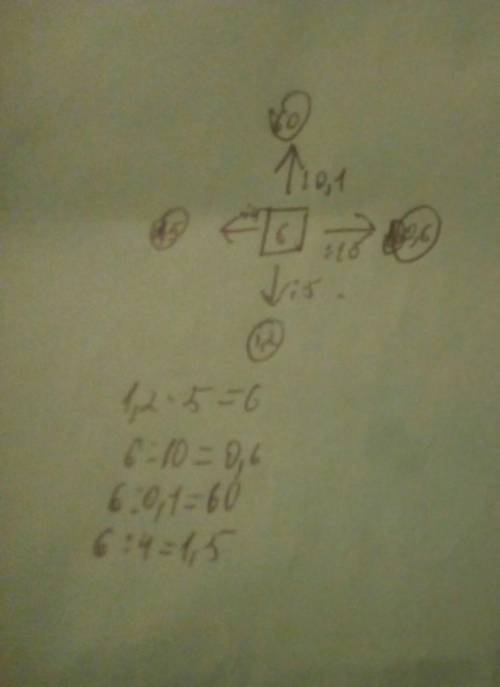 60
:0,1
6
:10
0,6
:5
1,2
1,2 · 5 = 6
6 : 10 = 0,6
6 : 0,1 = 60
6 : 4 = 1,5